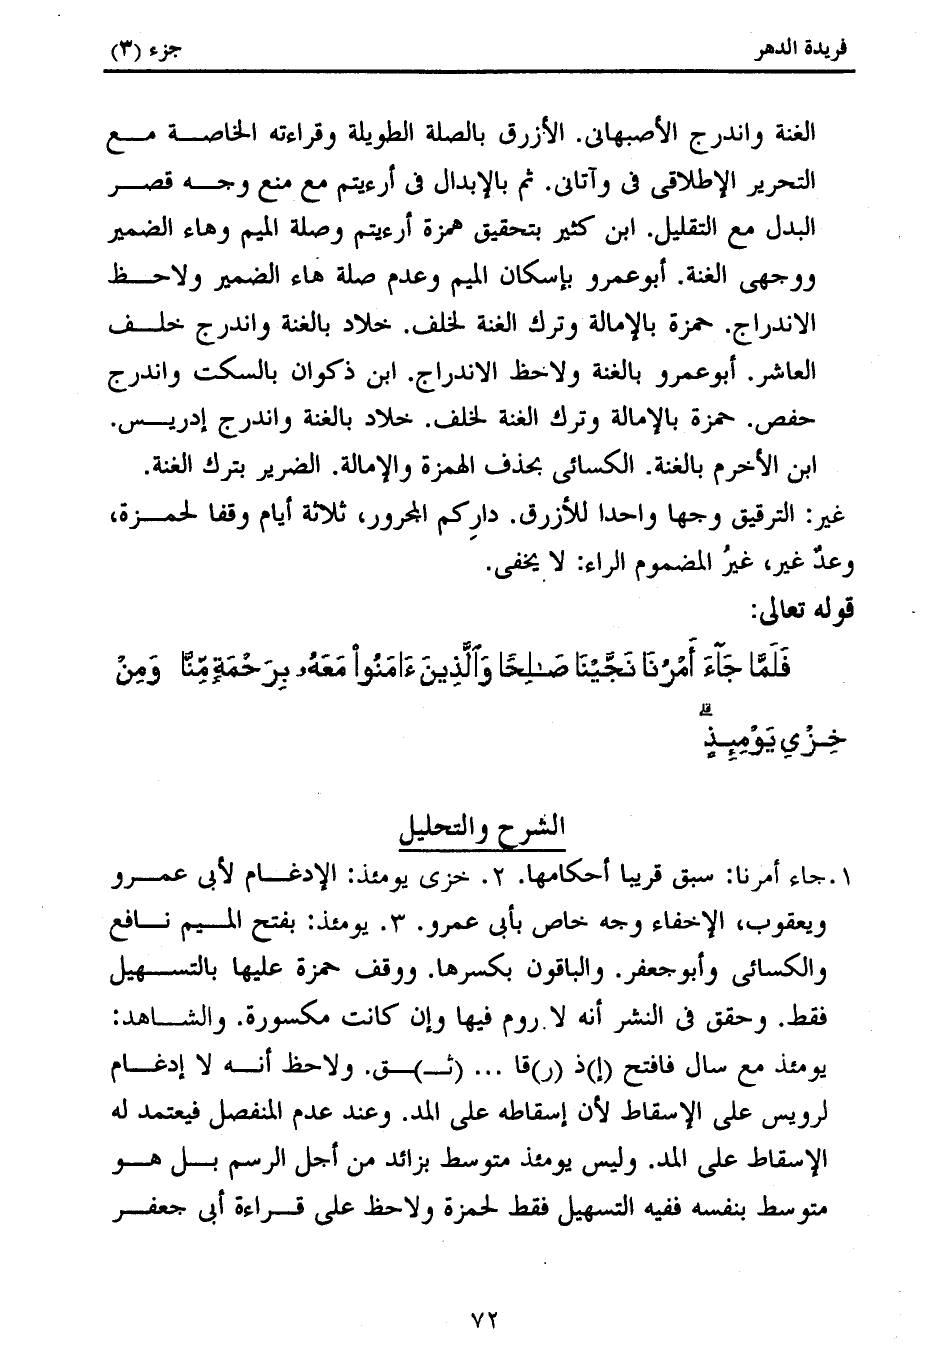 فريدة الدهر
جزء (٣)
الغنة واندرج الأصبهانى. الأزرق بالصلة الطويلة وقراءته الخاصة مع
التحرير الإطلاقى فى وآتانى. ثم بالإبدال فى أرءيتم مع منع وجه قصر
البدل مع التقليل. ابن كثير بتحقيق همزة أرءيتم وصلة الميم وهاء الضمير
ووجهى الغنة. أبوعمرو بإسكان الميم وعدم صلة هاء الضمير ولاحظ
الاندراج. حمزة بالإمالة وترك الغنة لخلف. خلاد بالغنة واندرج خلف
العاشر. أبوعمرو بالغنة ولاحظ الاندراج. ابن ذكوان بالسكت واندرج
حفص. حمزة بالإمالة وترك الغنة لخلف. خلاد بالغنة واندرج إدريس.
ابن الأخرم بالغنة. الكسائى بحذف الهمزة والإمالة. الضرير بترك الغنة.
غير: الترقيق وجها واحدا للأزرق. داركم المجرور، ثلاثة أيام وقفا لحمزة،
وعدٌ غير، غيرُ المضموم الراء: لا يخفى.
قوله تعالى:
فَلَمَّا جَآءَ أَمْرُنَا نَجَّيْنَا صَـٰلِحًا وَٱلَّذِينَ ءَامَنُوا۟ مَعَهُۥ بِرَحْمَةٍ مِّنَّا وَمِنْ
خِزْىِ يَوْمِئِذٍ ۗ
الشرح والتحليل
١. جاء أمرنا: سبق قريبا أحكامها. ٢. خزى يومئذ: الإدغام لأبى عمرو
ويعقوب، الإخفاء وجه خاص بأبى عمرو. ٣. يومئذ: بفتح الميم نافع
والكسائى وأبوجعفر. والباقون بكسرها. ووقف حمزة عليها بالتسهيل
فقط. وحقق فى النشر أنه لا روم فيها وإن كانت مكسورة. والشاهد:
يومئذ مع سال فافتح (إ)ذ (ر)فا ... (ثـ)ـق. ولاحظ أنه لا إدغام
لرويس على الإسقاط لأن إسقاطه على المد. وعند عدم المنفصل فيعتمد له
الإسقاط على المد. وليس يومئذ متوسط بزائد من أجل الرسم بل هو
متوسط بنفسه ففيه التسهيل فقط لحمزة ولاحظ على قراءة أبى جعفر
٧٢